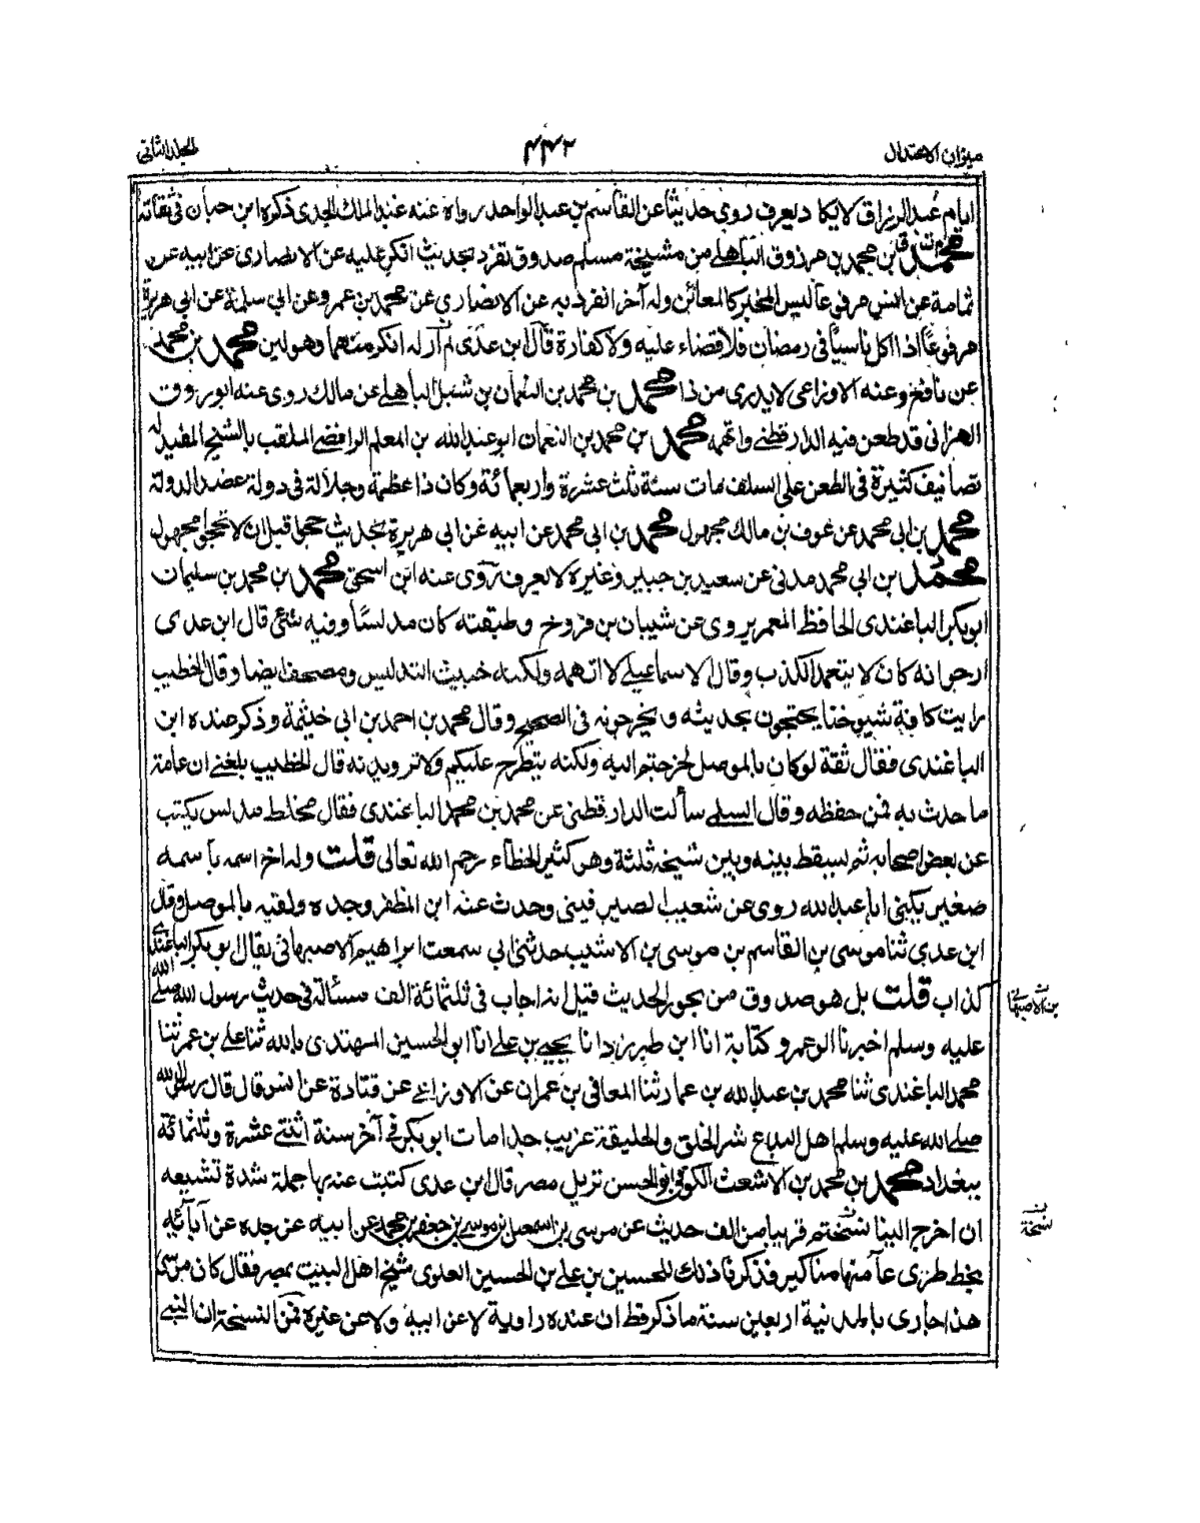 ميزان الاعتدال
٤٤٢
الجلد الثاني
ايام عبد الرزاق لايكاد يعرف روى حديثا عن القاسم بن عبد الواحد رواه عنه عبد الملك الجدى ذكره ابن حبان فى ثقاته
محمد بن محمد بن مرزوق الباهلى من مشيخة مسلم صدوق تفرد بحديث انكر عليه عن الانصارى عن ابيه عن
ثمامة عن انس مرفوعا ليس الخبر كالمعائن وله آخر انفرد به عن الانصارى عن محمد بن عمرو عن ابي سلمة عن ابى هريرة
مرفوعًا اذا اكل ناسيًا فى رمضان فلا قضاء عليه ولا كفارة قال ابن عدى لم ار له انكر منهما وهو لين محمد بن محمد
عن نافع وعنه الاوزاعى لايدرى من ذا محمد بن محمد بن النعمان بن شبل الباهلى عن مالك روى عنه ابو روق
الهزانى قد طعن فيه الدارقطنى واتهمه محمد بن محمد بن النعمان ابو عبد الله بن المعلم الرافضى الملقب بالشيخ المفيد له
تصانيف كثيرة فى الطعن على السلف مات سنة ثلث عشرة واربعمائة وكان ذا عظمة وجلالة فى دولة عضد الدولة
محمد بن ابى محمد عن عوف بن مالك مجهول محمد بن ابى محمد عن ابيه عن ابى هريرة بحديث حجوا قبل ان لا تحجوا مجهول
محمد بن ابى محمد مدنى عن سعيد بن جبير وغيره لا يعرف روى عنه ابن اسحق محمد بن محمد بن سليمان
ابو بكر الباغندى الحافظ المعمر يروى عن شيبان بن فروخ وطبقته كان مدلسًا وفيه شئ قال ابن عدى
ارجو انه كان لا يتعمد الكذب وقال الاسماعيلى لا اتهمه ولكنه خبيث التدليس ومصحف ايضا وقال الخطيب
رايت كافة شيوخنا يحتجون بحديثه ويخرجونه فى الصحيح وقال محمد بن احمد بن ابى خيثمة وذكر عنده ابن
الباغندى فقال ثقة لو كان بالموصل لخرجتم اليه ولكنه يتطرح عليكم ولا تريدونه قال الخطيب بلغنى ان عامة
ما حدث به فمن حفظه وقال السلمى سألت الدارقطنى عن محمد بن محمد الباغندى فقال مخلط مدلس يكتب
عن بعض اصحابه ثم يسقط بينه وبين شيخه ثلثة وهو كثير الخطاء رحمه الله تعالى قلت وله اخ اسمه باسمه
صغير يكنى ابا عبد الله روى عن شعيب الصريفينى وحدث عنه ابن المظفر وحده ولقيه بالموصل وقال
ابن عدى ثنا موسى بن القاسم بن موسى بن الاشيب حدثنى ابى سمعت ابراهيم الاصبهانى يقال ابو بكر الباغندى
كذاب قلت بل هو صدوق من بحور الحديث قيل انه اجاب فى ثلثمائة الف مسألة فى حديث رسول الله صلى الله
عليه وسلم اخبرنا ابو عمرو كتابة انا ابن طبرزد انا يحيى بن على انا ابو الحسين المهتدى بالله ثنا على بن عمر ثنا
محمد الباغندى ثنا محمد بن عبد الله بن عمار ثنا المعافى بن عمران عن الاوزاعى عن قتادة عن انس قال قال رسول الله
صلى الله عليه وسلم اهل البدع شر الخلق والخليقة غريب جدا مات ابو بكر فى آخر سنة اثنتى عشرة وثلثمائة
ببغداد محمد بن محمد بن الاشعث الكوفى ابو الحسن نزيل مصر قال ابن عدى كتبت عنه بها حمله شدة تشيعه
ان اخرج الينا نسخته قريبا من الف حديث عن موسى بن اسمعيل بن موسى بن جعفر بن محمد عن ابيه عن جده عن آبائه
بخط طرى عامتها مناكير فذكرنا ذلك للحسين بن على بن الحسين العلوى شيخ اهل البيت بمصر فقال كان موسى
هذا جارى بالمدينة اربعين سنة ما ذكر قط ان عنده رواية لا عن ابيه ولا عن غيره فمن النسخة ان النبى
بن الاصبهانى
نسخة